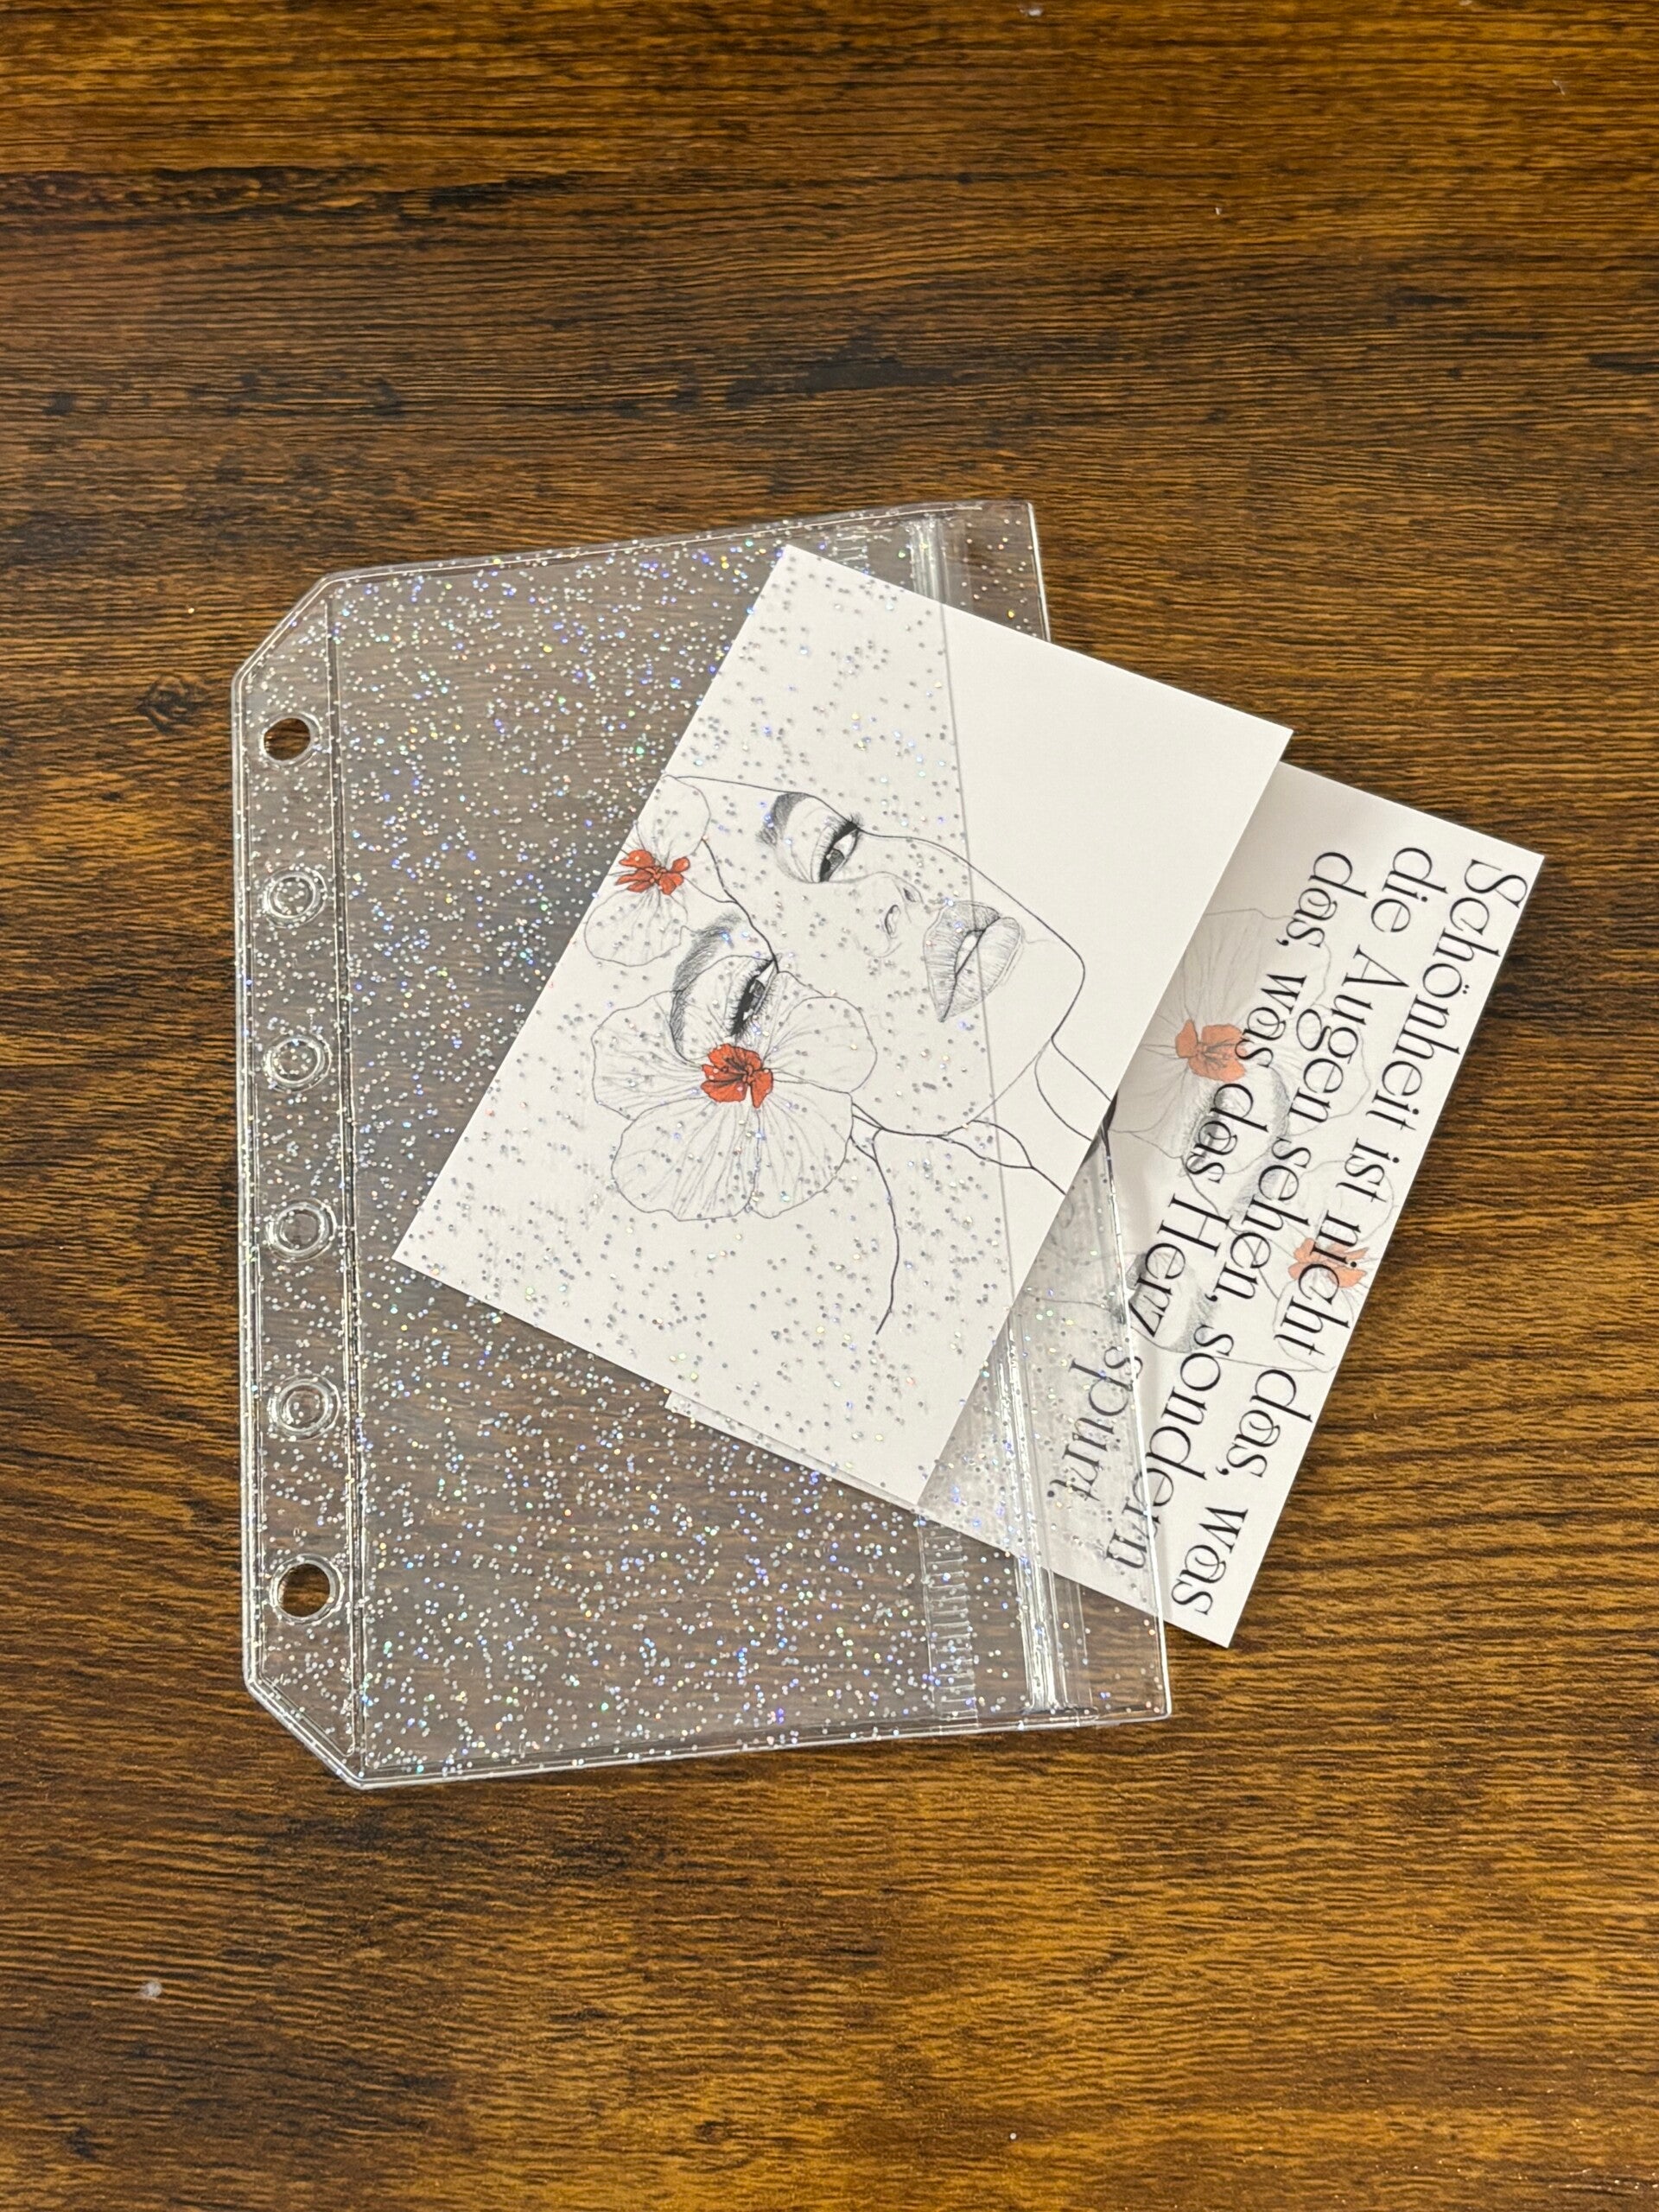 Schönheit ist nicht das, was
die Augen sehen, sondern
das, was das Herz
spürt.